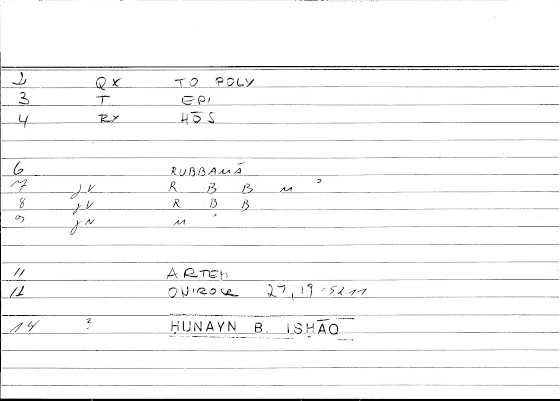 1 QX TO POLY
3 T EPI
4 RX HŌS
6 RUBBAMĀ
7 jV R B B M ᵓ
8 jV R B B
9 jN M ᵓ
11 ARTEM
12 ONIROCR 27,19 = 5211
14 ? ḤUNAYN B. ISḤĀQ